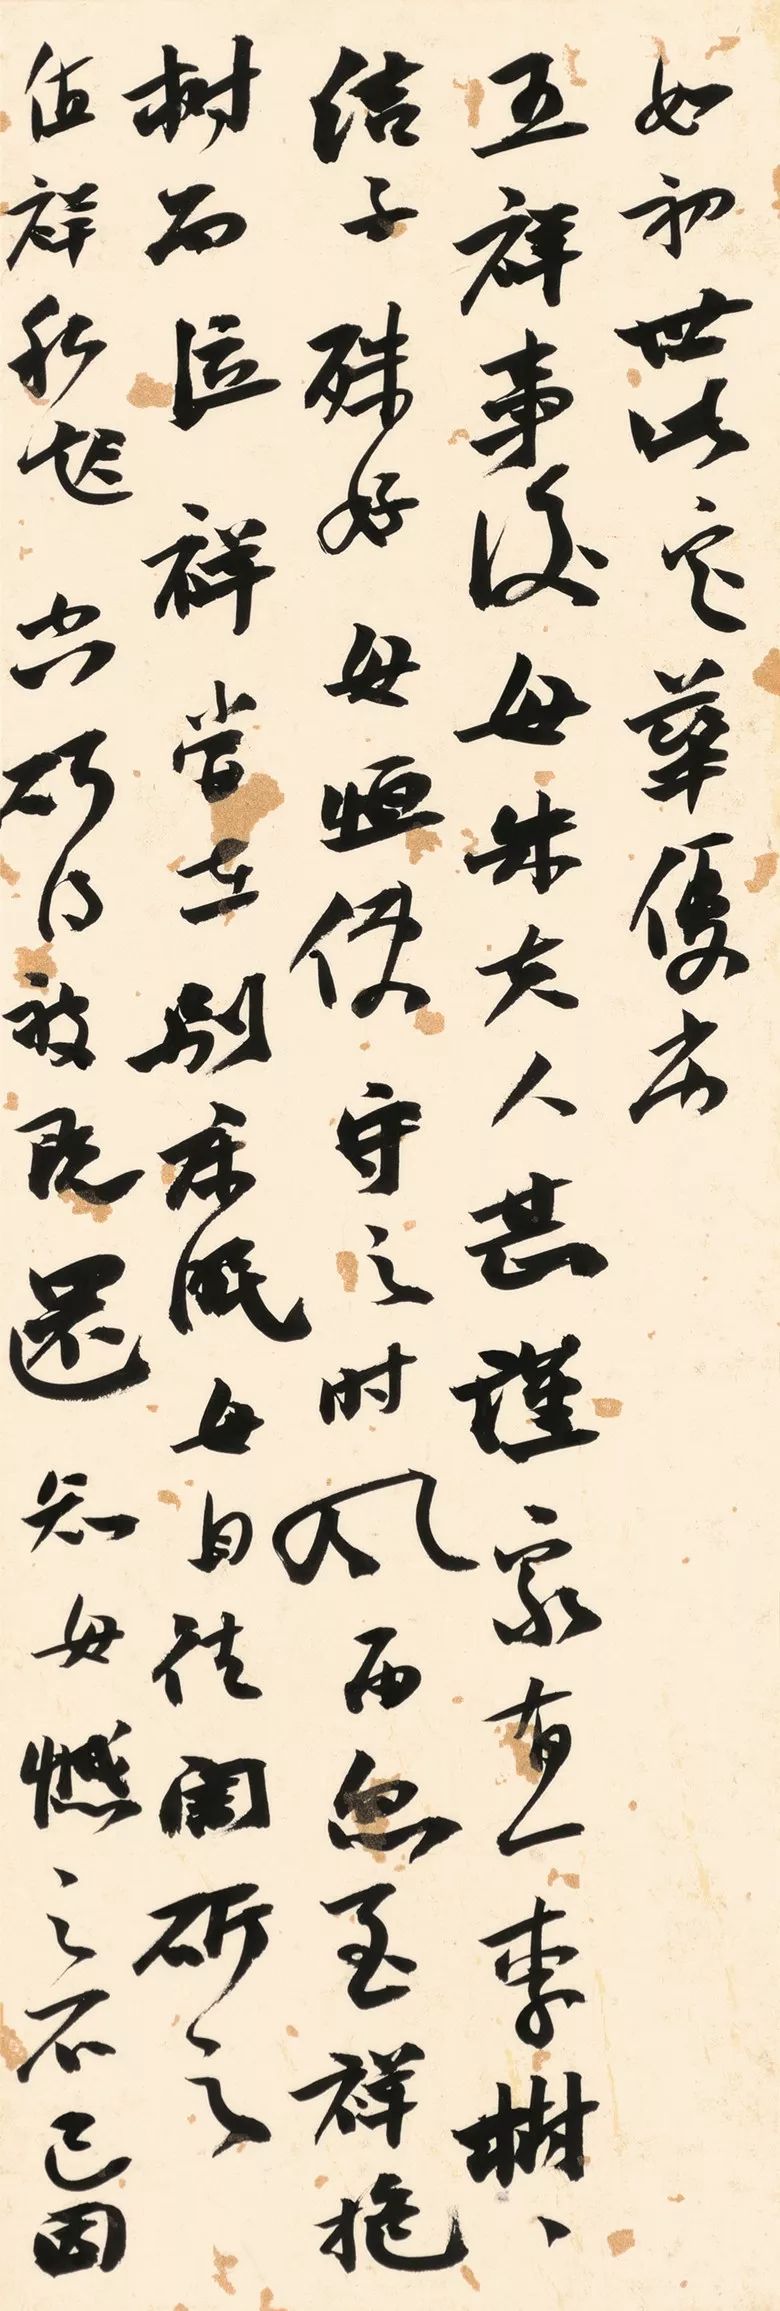 如初世以此定華優劣
王祥事後母朱夫人甚謹家有一李樹、
結子殊好母恒使守之時風雨忽至祥抱
樹而泣祥嘗在別床眠母自往闇斫之
值祥私起空斫得被既還知母憾之不已因